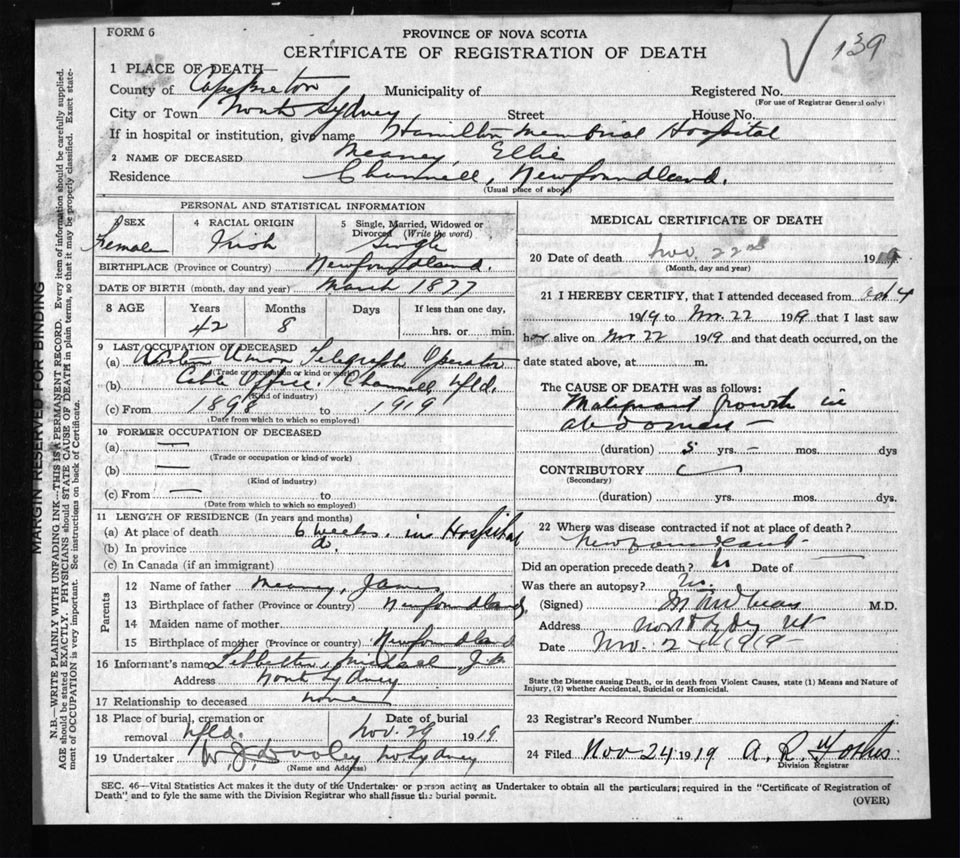 FORM 6
PROVINCE OF NOVA SCOTIA
CERTIFICATE OF REGISTRATION OF DEATH
139
1 PLACE OF DEATH
County of Cape Breton Municipality of Registered No.
(For use of Registrar General only)
City or Town North Sydney Street House No.
If in hospital or institution, give name Hamilton Memorial Hospital
2 NAME OF DECEASED Meaney, Ellie
Residence Channell, Newfoundland.
(Usual place of abode)
PERSONAL AND STATISTICAL INFORMATION
SEX Female
4 RACIAL ORIGIN Irish
5 Single, Married, Widowed or Divorced (Write the word) Single
BIRTHPLACE (Province or Country) Newfoundland.
DATE OF BIRTH (month, day and year) March 1877
8 AGE Years Months Days If less than one day,
42 8 hrs. or min.
9 LAST OCCUPATION OF DECEASED
(a) Western Union Telegraph Operator
(Trade or occupation or kind of work)
(b) Cable Office, Channell Nfld.
(Kind of industry)
(c) From 1898 to 1919
(Date from which to which so employed)
10 FORMER OCCUPATION OF DECEASED
(a) —
(Trade or occupation or kind of work)
(b) —
(Kind of industry)
(c) From — to
(Date from which to which so employed)
11 LENGTH OF RESIDENCE (In years and months)
(a) At place of death 6 weeks in Hospital
(b) In province do.
(c) In Canada (if an immigrant)
Parents
12 Name of father Meaney, James
13 Birthplace of father (Province or country) Newfoundland
14 Maiden name of mother
15 Birthplace of mother (Province or country) Newfoundland
16 Informant's name Michael
Address North Sydney
17 Relationship to deceased none
18 Place of burial, cremation or removal Nfld. Date of burial Nov. 29 1919
19 Undertaker W. J. Dooley No Sydney
(Name and Address)
MEDICAL CERTIFICATE OF DEATH
20 Date of death Nov. 22nd 1919
(Month, day and year)
21 I HEREBY CERTIFY, that I attended deceased from Oct 4
1919 to Nov. 22 1919 that I last saw
her alive on Nov 22 1919 and that death occurred, on the
date stated above, at m.
The CAUSE OF DEATH was as follows:
Malignant growth in
abdomen —
(duration) 5 yrs. — mos. dys
CONTRIBUTORY
(Secondary)
(duration) yrs. mos. dys.
22 Where was disease contracted if not at place of death?
Newfoundland
Did an operation precede death? No Date of —
Was there an autopsy? No.
(Signed) M.D.
Address North Sydney
Date Nov. 1919
State the Disease causing Death, or in death from Violent Causes, state (1) Means and Nature of
Injury, (2) whether Accidental, Suicidal or Homicidal.
23 Registrar's Record Number
24 Filed Nov 24 1919 A. R. Forbes
Division Registrar
SEC. 46—Vital Statistics Act makes it the duty of the Undertaker or person acting as Undertaker to obtain all the particulars required in the "Certificate of Registration of
Death" and to fyle the same with the Division Registrar who shall issue the burial permit.
(OVER)
MARGIN RESERVED FOR BINDING
N.B.—WRITE PLAINLY WITH UNFADING INK—THIS IS A PERMANENT RECORD. Every item of information should be carefully supplied.
AGE should be stated EXACTLY. PHYSICIANS should STATE CAUSE OF DEATH in plain terms, so that it may be properly classified. Exact state-
ment of OCCUPATION is very important. See instructions on back of Certificate.